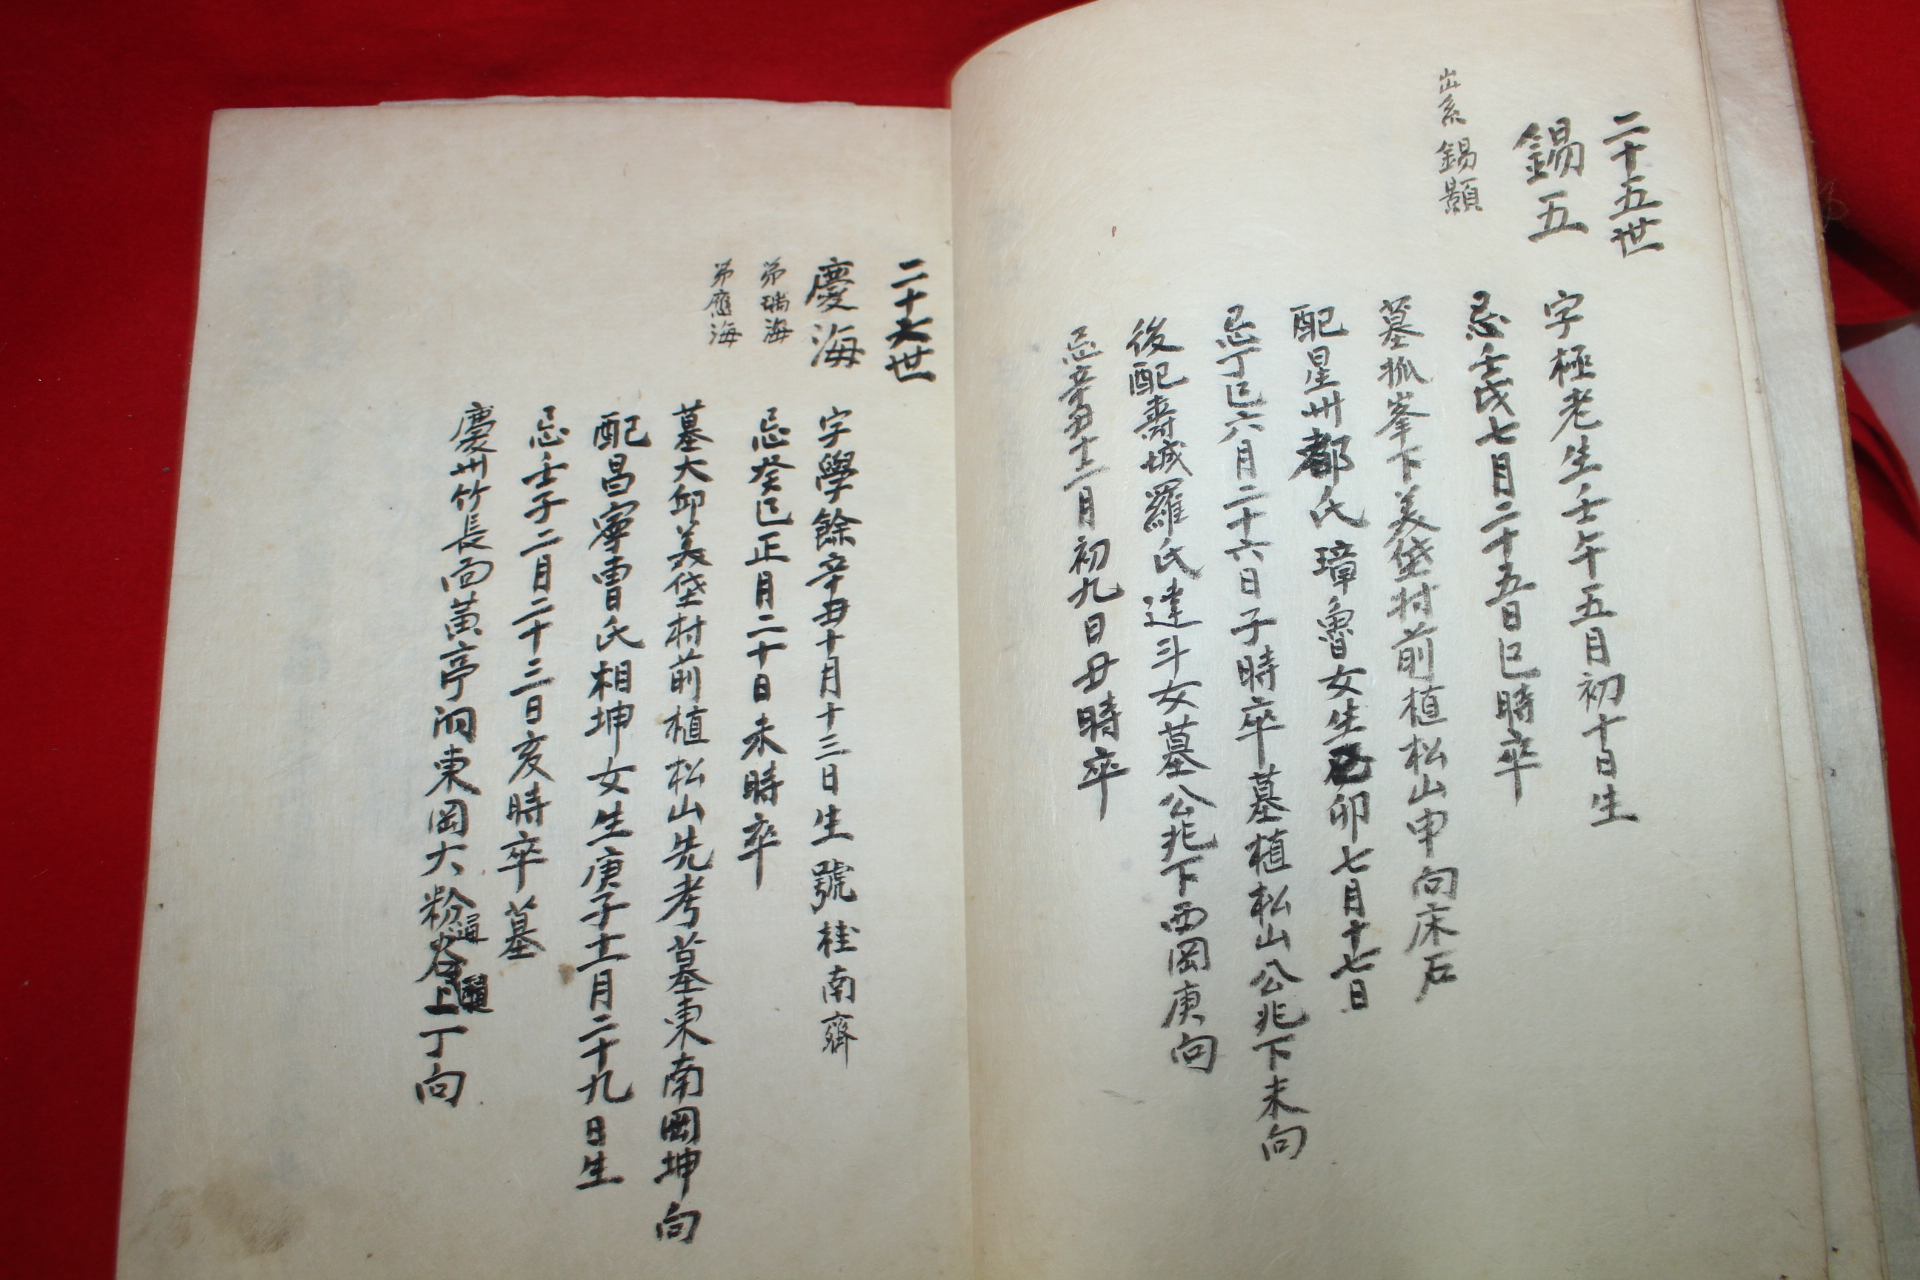 二十五世
錫五
出系 錫顯
字極老生壬午五月初十日生
忌壬戌七月二十五日巳時卒
墓狐峯下美垈村前植松山申向床石
配星州都氏璋魯女生己卯七月十七日
忌丁巳六月二十六日子時卒墓植松山公兆下未向
後配壽城羅氏達斗女墓公兆下西岡庚向
忌辛丑十二月初九日丑時卒
二十六世
慶海
弟瑞海
弟應海
字學餘辛丑十月十三日生 號桂南齋
忌癸巳正月二十日未時卒
墓大邱美垈村前植松山先考墓東南岡坤向
配昌寧曹氏相坤女生庚子十一月二十九日生
忌壬子二月二十三日亥時卒 墓
慶州竹長面黃亭洞東岡大粉 丁向